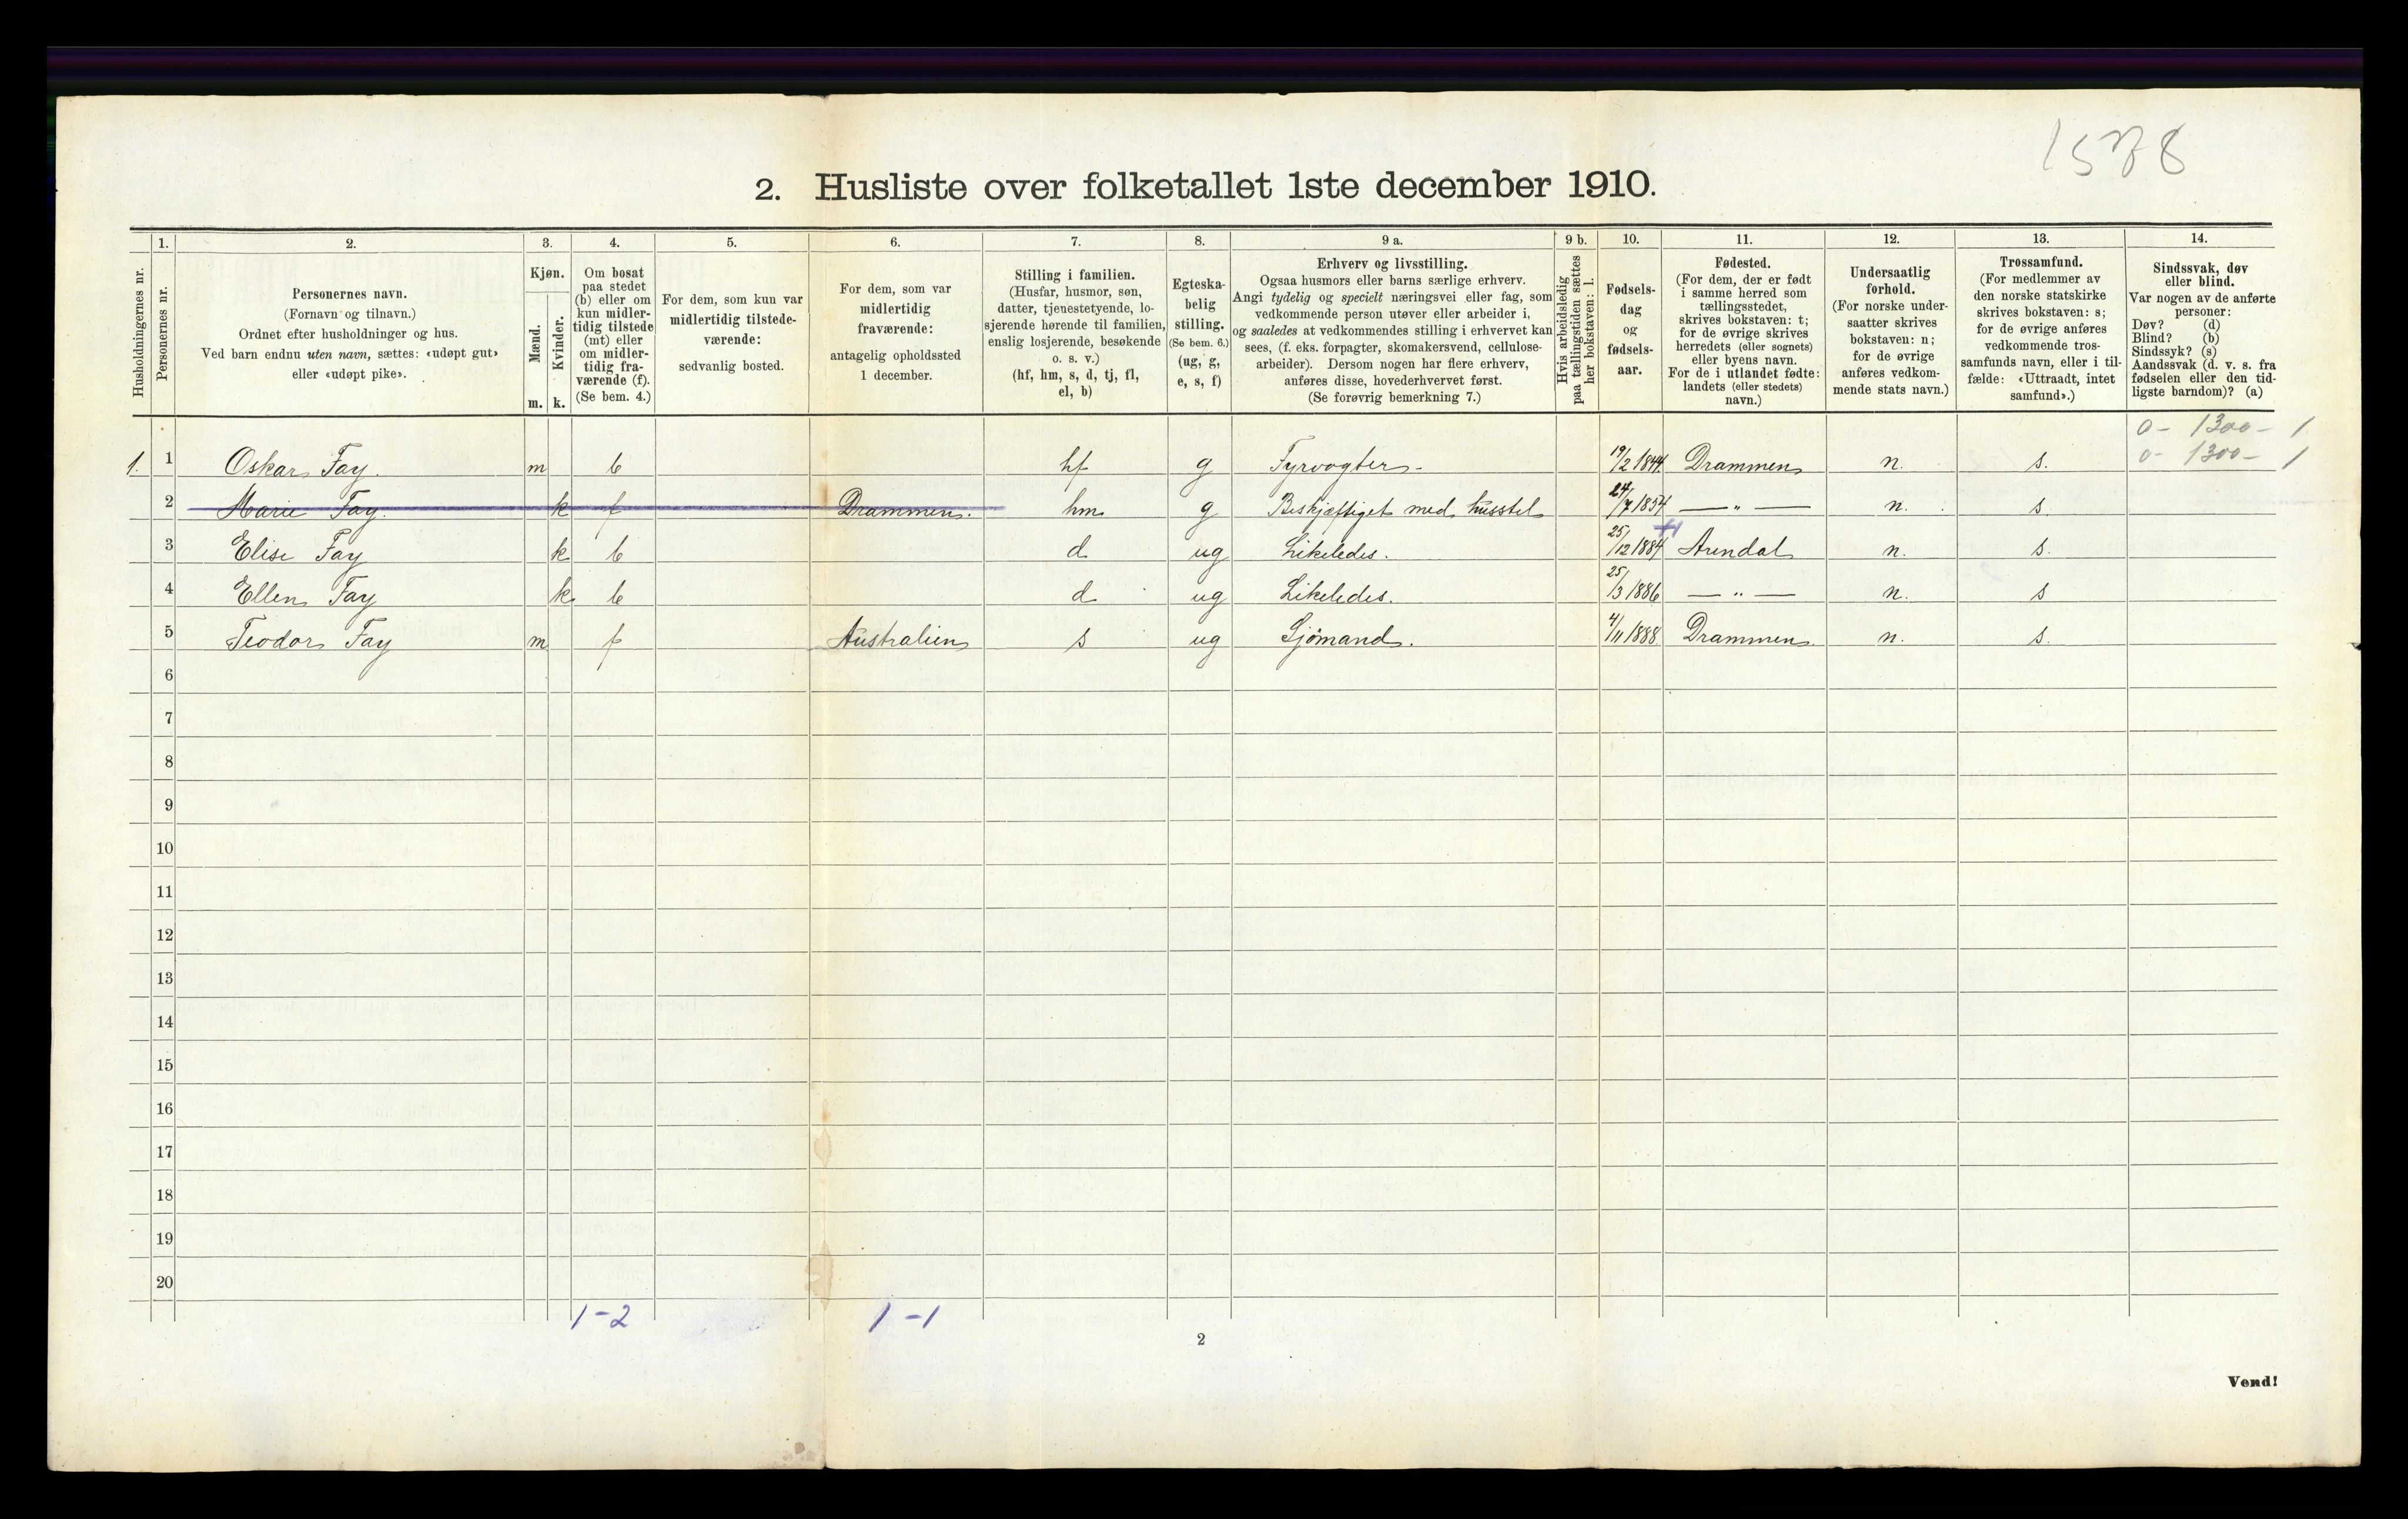 1578
2. Husliste over folketallet 1ste december 1910.
Husholdningernes nr.
1.
Personernes nr.
2.
Personernes navn.
(Fornavn og tilnavn.)
Ordnet efter husholdninger og hus.
Ved barn endnu uten navn, sættes: «udøpt gut»
eller «udøpt pike».
3.
Kjøn.
Mænd.
Kvinder.
m. k.
4.
Om bosat
paa stedet
(b) eller om
kun midler-
tidig tilstede
(mt) eller
om midler-
tidig fra-
værende (f).
(Se bem. 4.)
5.
For dem, som kun var
midlertidig tilstede-
værende:
sedvanlig bosted.
6.
For dem, som var
midlertidig
fraværende:
antagelig opholdssted
1 december.
7.
Stilling i familien.
(Husfar, husmor, søn,
datter, tjenestetyende, lo-
sjerende hørende til familien,
enslig losjerende, besøkende
o. s. v.)
(hf, hm, s, d, tj, fl,
el, b)
8.
Egteska-
belig
stilling.
(Se bem. 6.)
(ug, g,
e, s, f)
9 a.
Erhverv og livsstilling.
Ogsaa husmors eller barns særlige erhverv.
Angi tydelig og specielt næringsvei eller fag, som
vedkommende person utøver eller arbeider i,
og saaledes at vedkommendes stilling i erhvervet kan
sees, (f. eks. forpagter, skomakersvend, cellulose-
arbeider). Dersom nogen har flere erhverv,
anføres disse, hovederhvervet først.
(Se forøvrig bemerkning 7.)
9 b.
Hvis arbeidsledig
paa tællingstiden sættes
her bokstaven: l.
10.
Fødsels-
dag
og
fødsels-
aar.
11.
Fødested.
(For dem, der er født
i samme herred som
tællingsstedet,
skrives bokstaven: t;
for de øvrige skrives
herredets (eller sognets)
eller byens navn.
For de i utlandet fødte:
landets (eller stedets)
navn.)
12.
Undersaatlig
forhold.
(For norske under-
saatter skrives
bokstaven: n;
for de øvrige
anføres vedkom-
mende stats navn.)
13.
Trossamfund.
(For medlemmer av
den norske statskirke
skrives bokstaven: s;
for de øvrige anføres
vedkommende tros-
samfunds navn, eller i til-
fælde: «Uttraadt, intet
samfund».)
14.
Sindssvak, døv
eller blind.
Var nogen av de anførte
personer:
Døv? (d)
Blind? (b)
Sindssyk? (s)
Aandssvak (d. v. s. fra
fødselen eller den tid-
ligste barndom)? (a)
0- 1300- 1
1. 1 Oskar Fay. m b hf g Fyrvogter - 19/2 1844. Drammen n. s. 0- 1300- 1
2 Marie Fay. k f Drammen. hm g Beskjæftiget med husstel 24/7 1854 — „ — n. s.
3 Elise Fay k b d ug Likeledes. 25/12 1884 Arendal n. s.
4 Ellen Fay k b d ug Likeledes. 25/3 1886 — „ — n. s
5 Teodor Fay m f Australien s ug Sjömand. 4/11 1888. Drammen. n. s.
6
7
8
9
10
11
12
13
14
15
16
17
18
19
20
1-2 1-1
2
Vend!